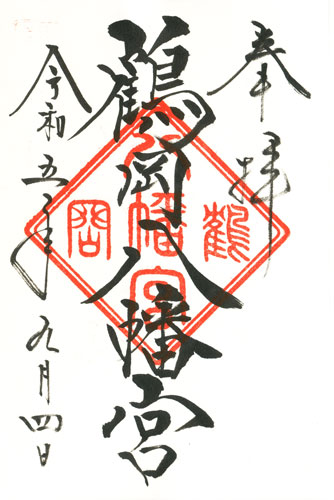 奉拝
鶴岡八幡宮
令和五年九月四日
鶴
八幡宮
岡